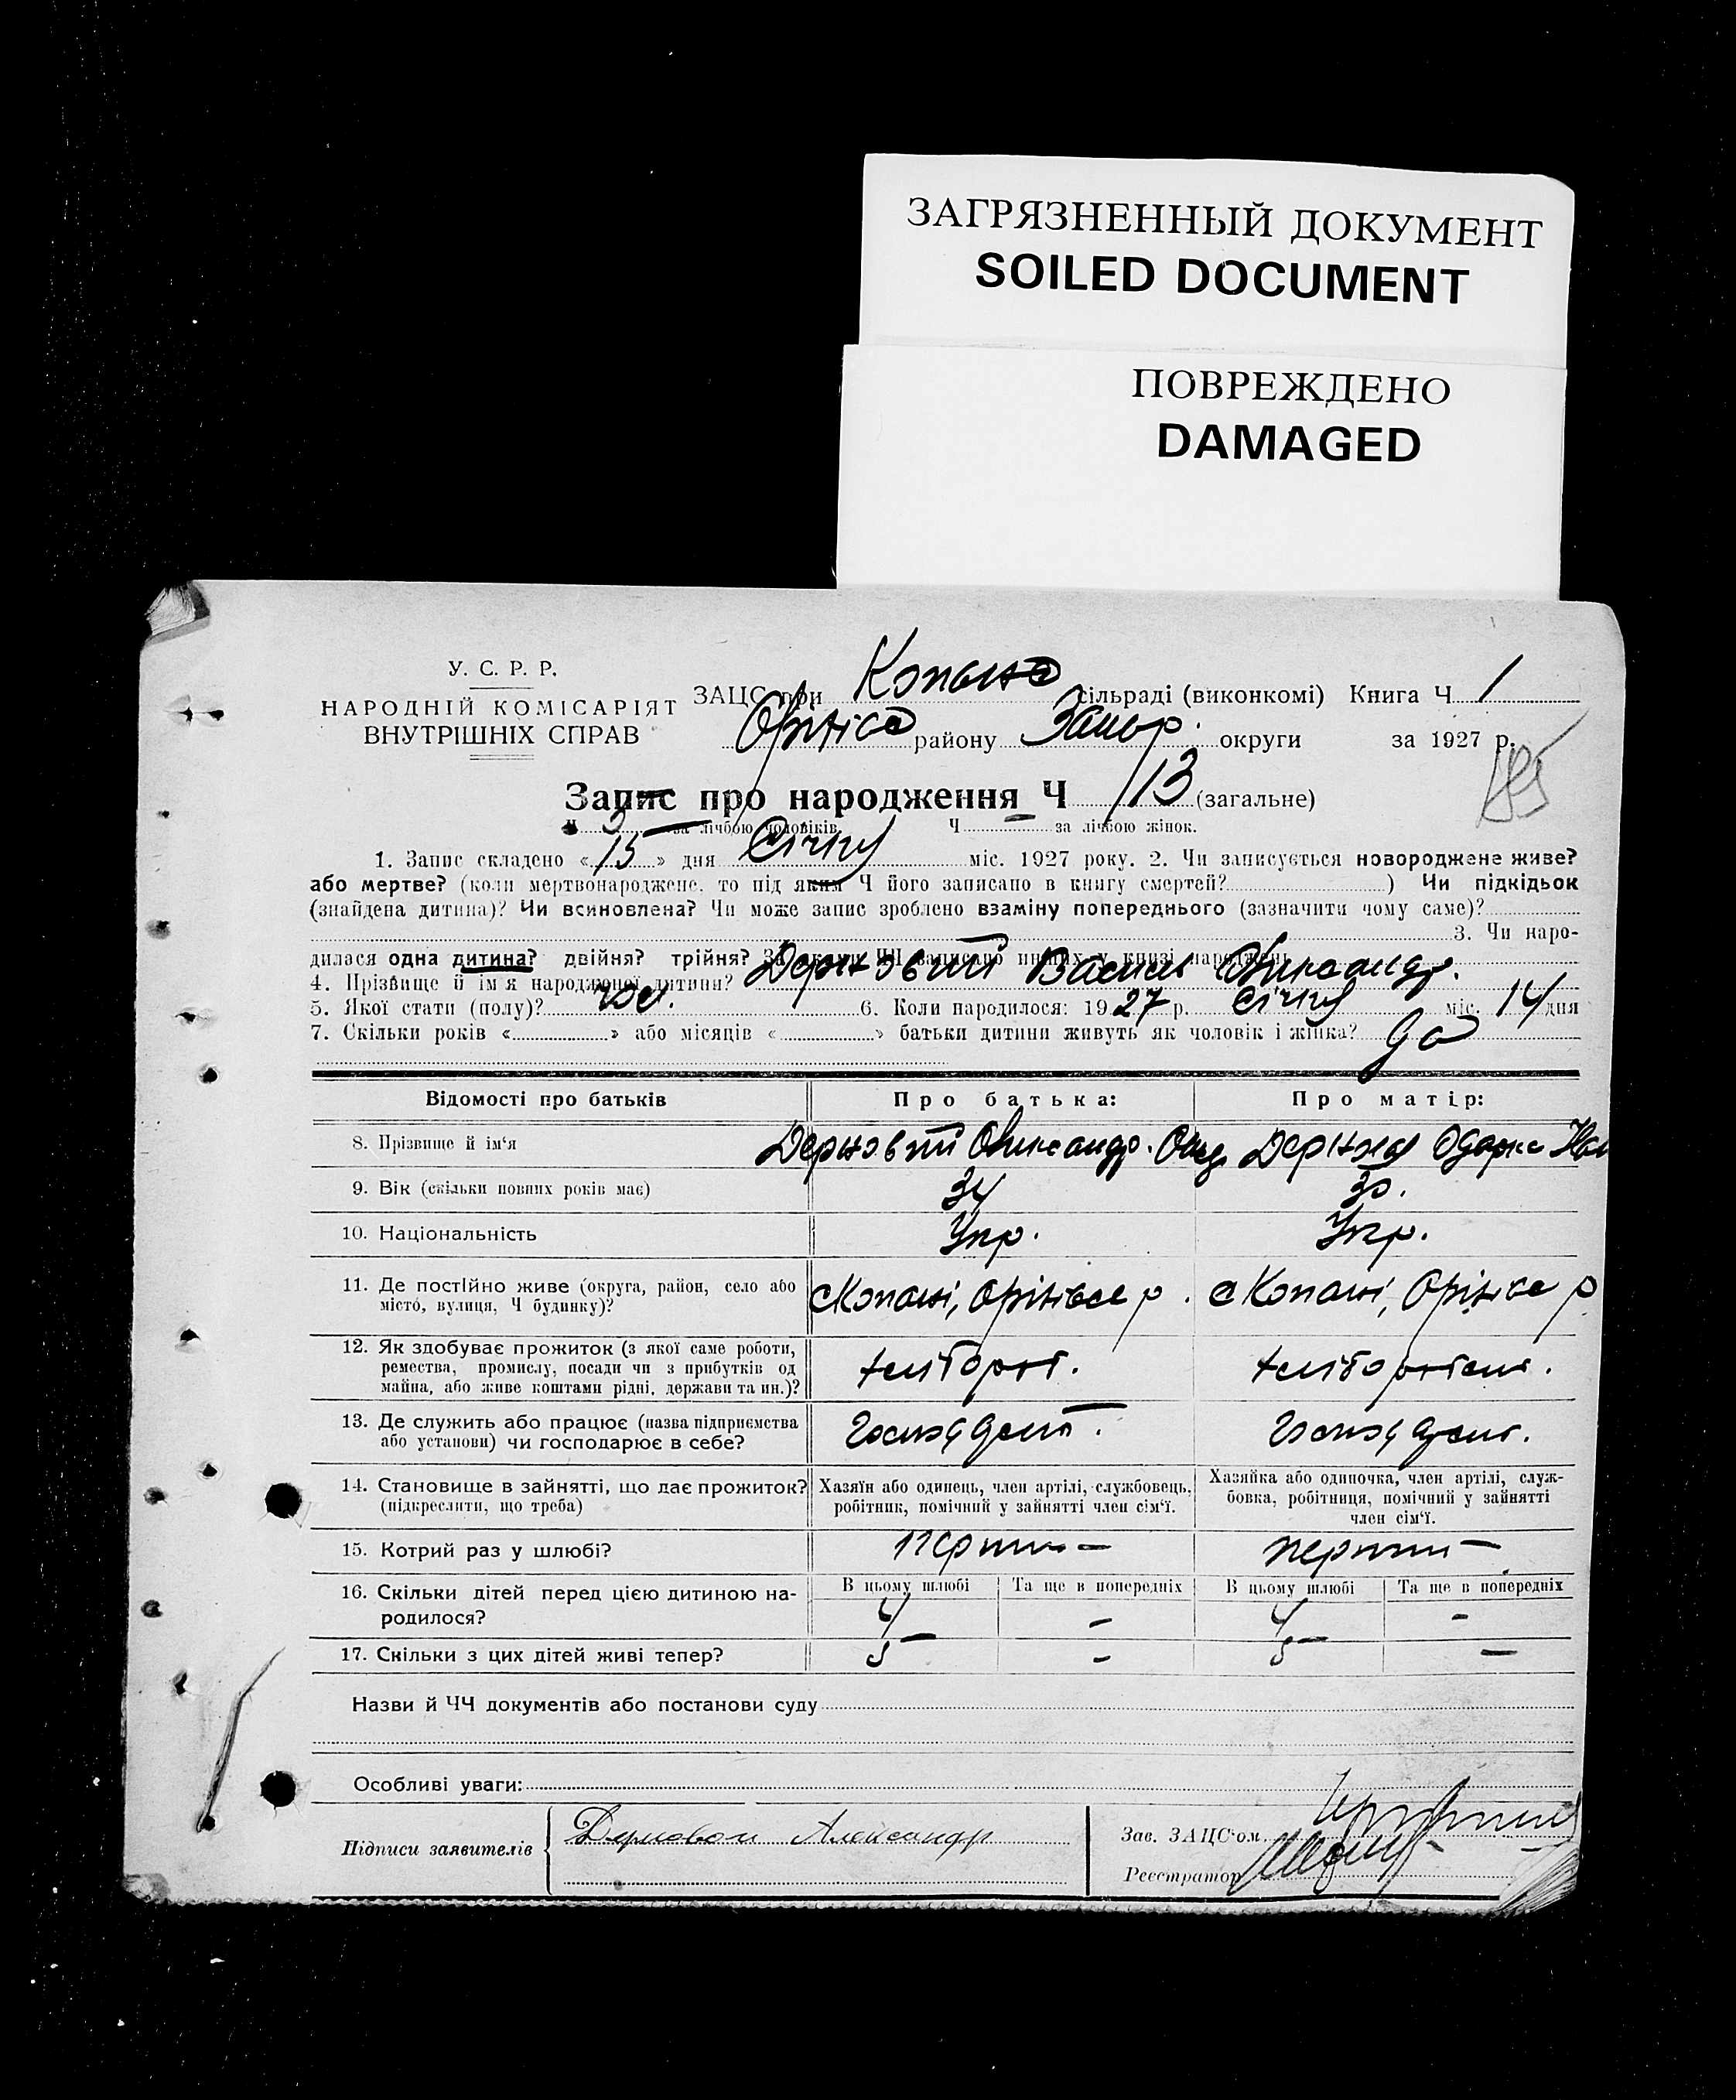 ЗАГРЯЗНЕННЫЙ ДОКУМЕНТ
SOILED DOCUMENT
ПОВРЕЖДЕНО
DAMAGED
У. С. Р. Р.
НАРОДНІЙ КОМІСАРІЯТ
ВНУТРІШНІХ СПРАВ
ЗАЦС при сільраді (виконкомі) Книга Ч 1
району Запор. округи за 1927 р.
Запис про народження Ч 13 (загальне)
Ч 5 за лічбою чоловіків Ч – за лічбою жінок.
1. Запис складено « 15 » дня Січня міс. 1927 року. 2. Чи записується новороджене живе?
або мертве? (коли мертвонароджене, то під яким Ч його записано в книгу смертей? ) Чи підкідьок
(знайдена дитина)? Чи всиновлена? Чи може запис зроблено взаміну попереднього (зазначити чому саме)?
3. Чи наро-
дилася одна дитина? двійня? трійня? За якими ЧЧ записано инших у книзі народжень
4. Прізвище й ім'я народженої дитини? Дерновий Василь Олександр.
5. Якої стати (полу)? чол. 6. Коли народилося: 1927 р. Січня міс. 14 дня
7. Скільки років « » або місяців « » батьки дитини живуть як чоловік і жінка? да
Відомості про батьків Про батька: Про матір:
8. Прізвище й ім'я Дерновий Олександр. Дернова Одарка
9. Вік (скільки повних років має) 34 30.
10. Національність Укр. Укр.
11. Де постійно живе (округа, район, село або
місто, вулиця, Ч будинку)? с Копані, Оріхівськ р. с Копані, Оріхівськ р
12. Як здобуває прожиток (з якої саме роботи,
ремества, промислу, посади чи з прибутків од
майна, або живе коштами рідні, держави та ин.)? хлібороб.
13. Де служить або працює (назва підприємства
або установи) чи господарює в себе?
14. Становище в зайнятті, що дає прожиток?
(підкреслити, що треба)
Хазяїн або одинець, член артілі, службовець,
робітник, помічний у зайнятті член сім'ї.
Хазяйка або одиночка, член артілі, служ-
бовка, робітниця, помічний у зайнятті
член сім'ї.
15. Котрий раз у шлюбі? перший перший
16. Скільки дітей перед цією дитиною на-
родилося?
В цьому шлюбі Та ще в попередніх В цьому шлюбі Та ще в попередніх
4 – 4 –
17. Скільки з цих дітей живі тепер? 5 – 5 –
Назви й ЧЧ документів або постанови суду
Особливі уваги:
Підписи заявителів Дерновой Александр
Зав. ЗАЦС'ом
Реєстратор